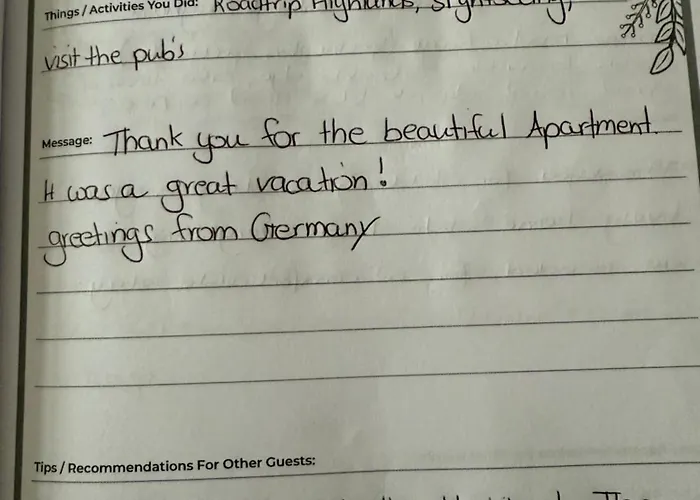 Things / Activities You Did: Roadtrip Highlands, sightseeing,
visit the pub's
Message: Thank you for the beautiful Apartment.
It was a great vacation!
greetings from Germany
Tips / Recommendations For Other Guests: